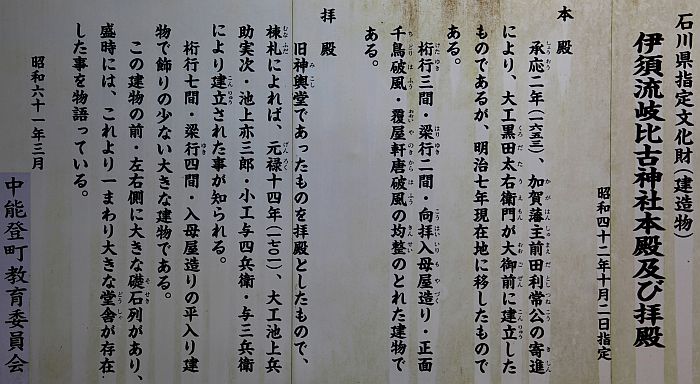 石川県指定文化財(建造物)
伊須流岐比古神社本殿及び拝殿
昭和四十二年十月二日指定
本殿
承応二年(一六五三)、加賀藩主前田利常公の寄進
により、大工黒田太右衛門が大御前に建立した
ものであるが、明治七年現在地に移したもので
ある。
桁行三間・梁行二間・向拝入母屋造り・正面
千鳥破風・覆屋軒唐破風の均整のとれた建物で
ある。
拝殿
旧神輿堂であったものを拝殿としたもので、
棟札によれば、元禄十四年(一七〇一)、大工池上兵
助実次・池上亦三郎・小工与四兵衛・与三兵衛
により建立された事が知られる。
桁行七間・梁行四間・入母屋造りの平入り建
物で飾りの少ない大きな建物である。
この建物の前・左右側に大きな礎石列があり、
盛時には、これより一まわり大きな堂舎が存在
した事を物語っている。
昭和六十一年三月
中能登町教育委員会